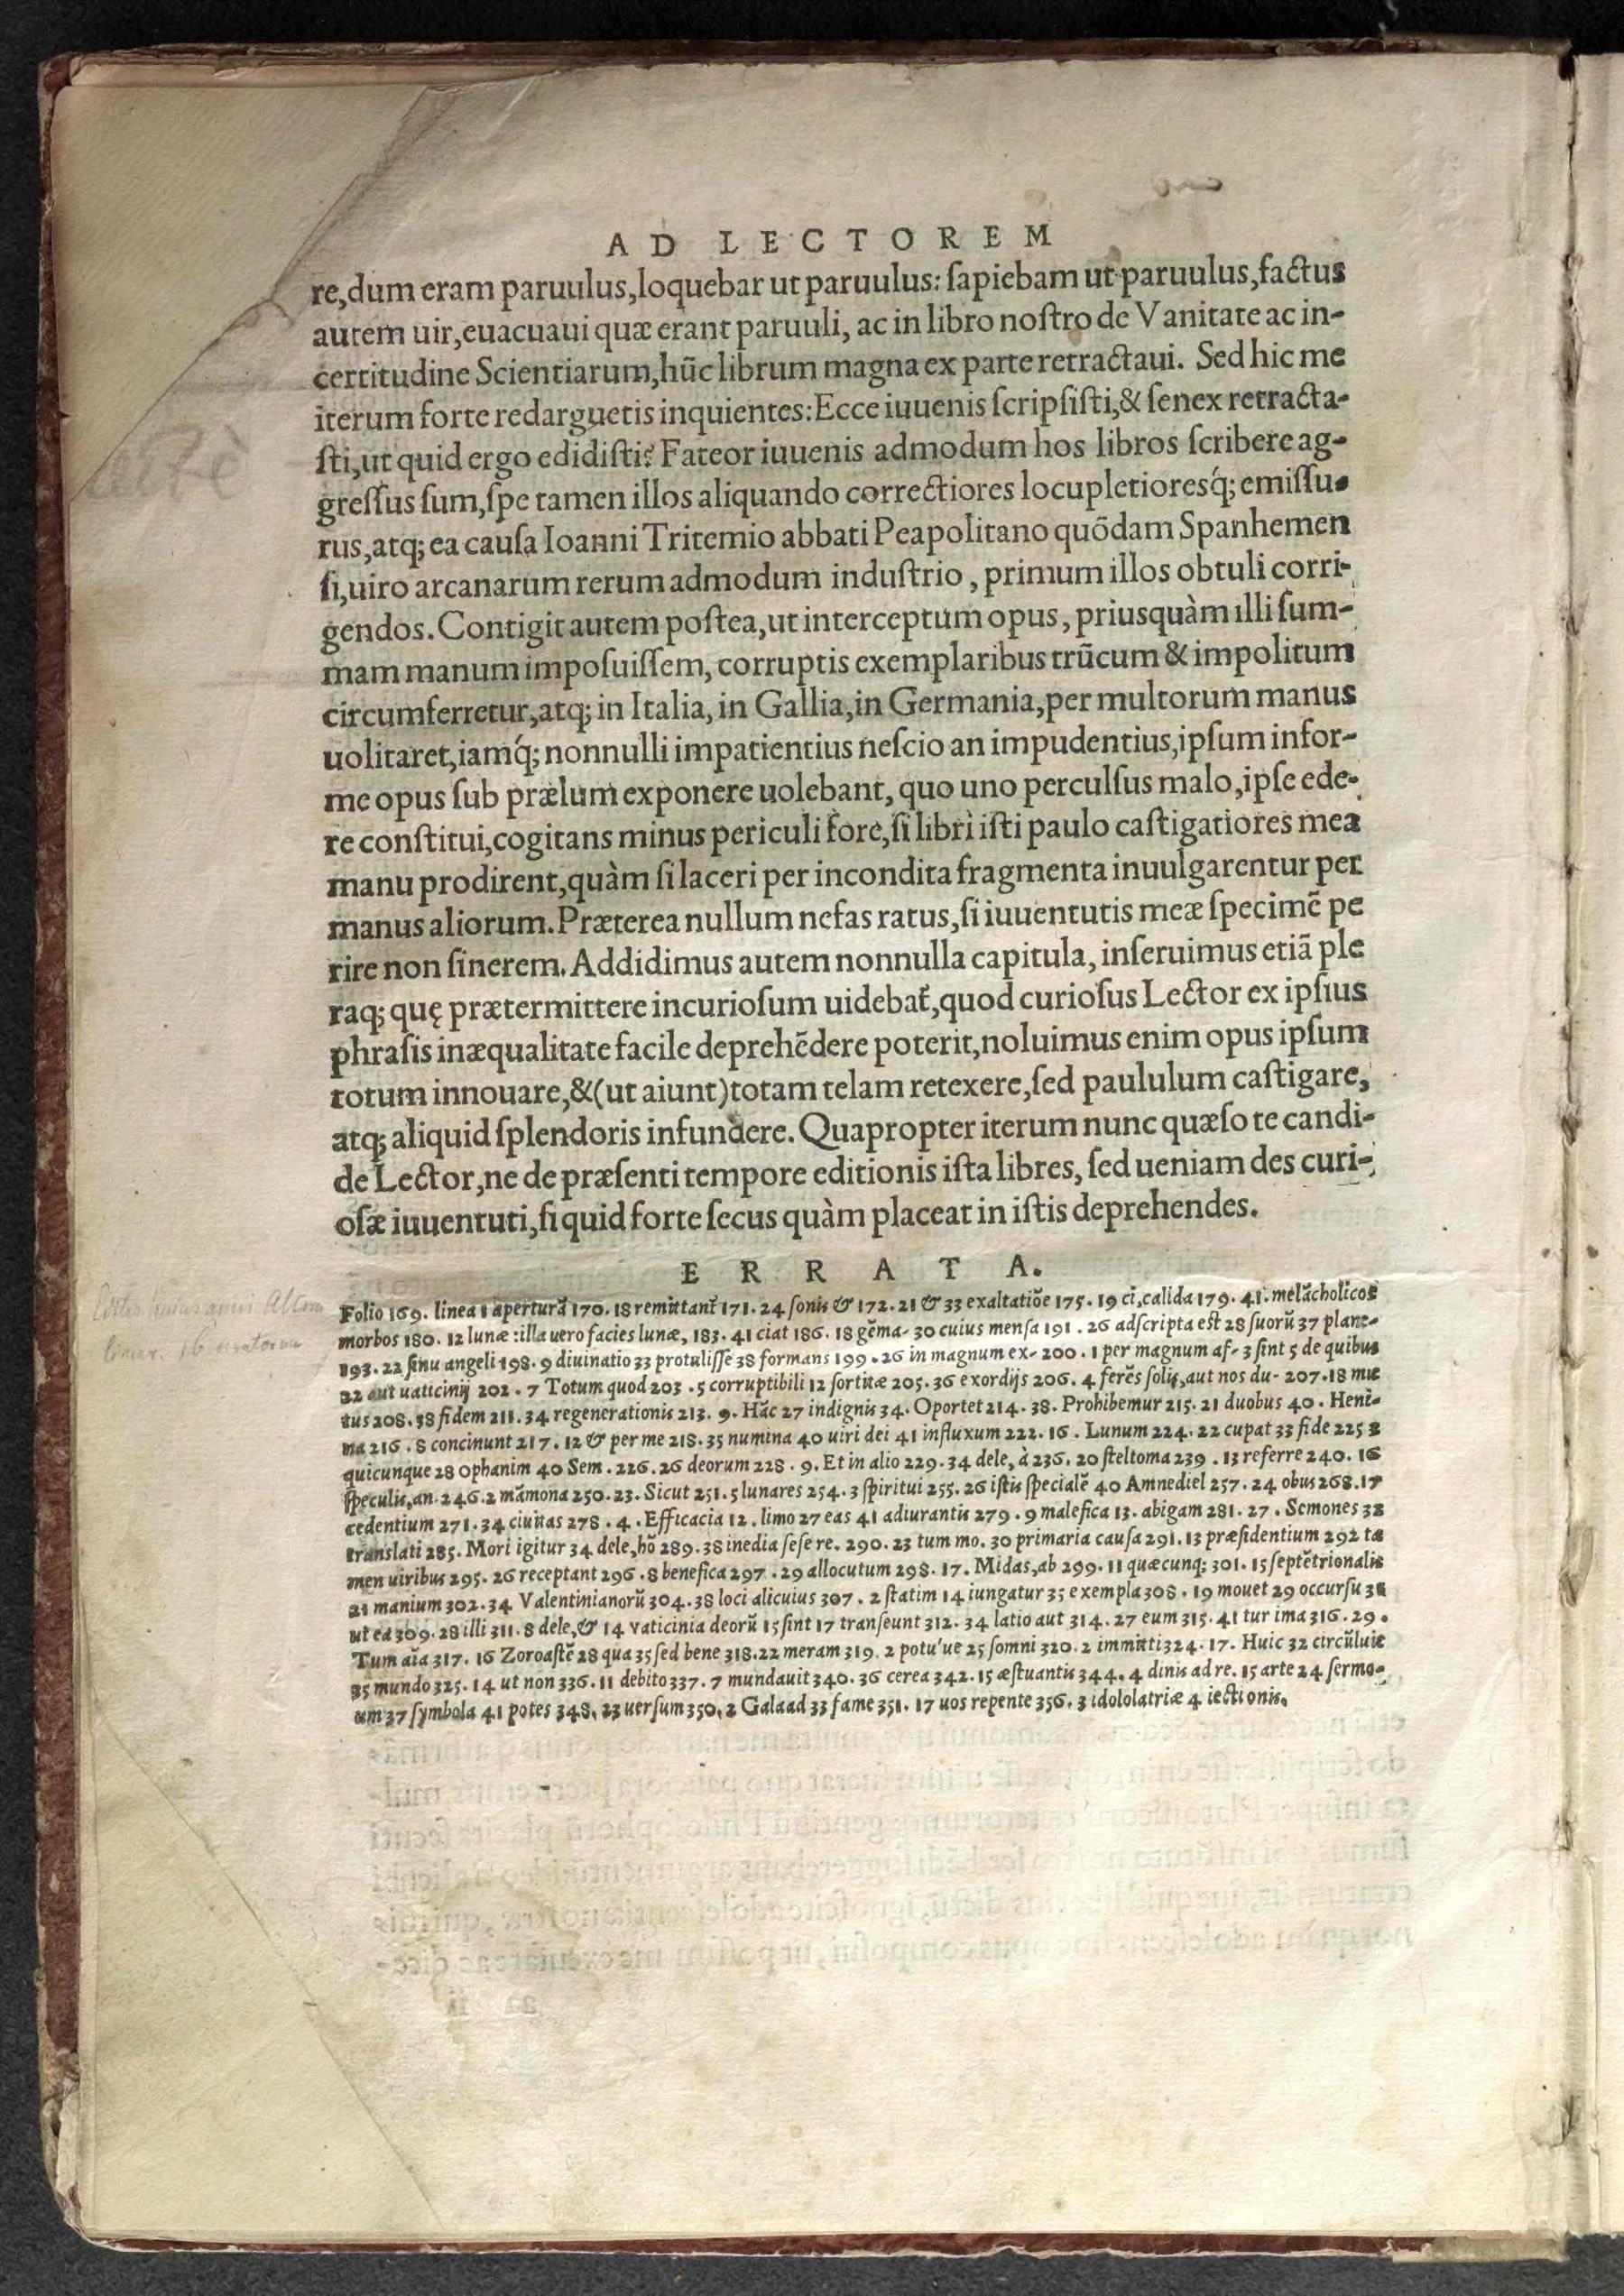 AD LECTOREM
re,dum eram paruulus,loquebar ut paruulus: ſapiebam ut paruulus,factus
autem uir,euacuaui quæ erant paruuli, ac in libro noſtro de Vanitate ac in-
certitudine Scientiarum,hũc librum magna ex parte retractaui. Sed hic me
iterum forte redarguetis inquientes: Ecce iuuenis ſcripſiſti,& ſenex retracta-
ſti,ut quid ergo edidiſti? Fateor iuuenis admodum hos libros ſcribere ag-
greſſus ſum,ſpe tamen illos aliquando correctiores locupletioresq́; emiſſu-
rus,atq; ea cauſa Ioanni Tritemio abbati Peapolitano quõdam Spanhemen
ſi,uiro arcanarum rerum admodum induſtrio, primum illos obtuli corri-
gendos. Contigit autem poſtea,ut interceptum opus, priusquàm illi ſum-
mam manum impoſuiſſem, corruptis exemplaribus trũcum & impolitum
circumferretur,atq; in Italia, in Gallia,in Germania,per multorum manus
uolitaret,iamq́; nonnulli impatientius neſcio an impudentius,ipſum infor-
me opus ſub prælum exponere uolebant, quo uno perculſus malo,ipſe ede-
re conſtitui,cogitans minus periculi fore,ſi libri iſti paulo caſtigatiores mea
manu prodirent,quàm ſi laceri per incondita fragmenta inuulgarentur per
manus aliorum. Præterea nullum nefas ratus,ſi iuuentutis meæ ſpecimẽ pe
rire non ſinerem. Addidimus autem nonnulla capitula, inſeruimus etiã ple
raq; quę prætermittere incurioſum uidebat̃,quod curioſus Lector ex ipſius
phraſis inæqualitate facile deprehẽdere poterit,noluimus enim opus ipſum
totum innouare,&(ut aiunt)totam telam retexere,ſed paululum caſtigare,
atq; aliquid ſplendoris infundere. Quapropter iterum nunc quæſo te candi-
de Lector,ne de præſenti tempore editionis iſta libres, ſed ueniam des curi-
oſæ iuuentuti,ſi quid forte ſecus quàm placeat in iſtis deprehendes.
ERRATA.
Folio 169. linea 1 aperturã 170. 18 remittant̃ 171. 24 ſonis & 172. 21 & 33 exaltatiõe 175. 19 ci,calida 179. 41. melãcholicos
morbos 180. 12 lunæ: illa uero facies lunæ, 183. 41 ciat 186. 18 gẽma- 30 cuius menſa 191. 26 adſcripta eſt 28 ſuorũ 37 plane-
193. 22 ſinu angeli 198. 9 diuinatio 33 protuliſſe 38 formans 199. 26 in magnum ex- 200. 1 per magnum aſ- 3 ſint 5 de quibus
22 aut uaticinij 202. 7 Totum quod 203. 5 corruptibili 12 ſortitæ 205. 36 exordijs 206. 4 ferẽs ſolis,aut nos du- 207. 18 mit
tus 208. 38 fidem 211. 34 regenerationis 213. 9. Hãc 27 indignis 34. Oportet 214. 38. Prohibemur 215. 21 duobus 40. Heni-
na 216. 8 concinunt 217. 12 & per me 218. 35 numina 40 uiri dei 41 influxum 222. 16. Lunum 224. 22 cupat 33 fide 225 8
quicunque 28 Ophanim 40 Sem. 226. 26 deorum 228. 9. Et in alio 229. 34 dele, à 236. 20 ſteltoma 239. 13 referre 240. 16
ſpeculis,an. 246. 2 mãmona 250. 23. Sicut 251. 5 lunares 254. 3 ſpiritui 255. 26 iſtis ſpecialẽ 40 Amnediel 257. 24 obus 268. 17
cedentium 271. 34 ciuitas 278. 4. Efficacia 12. limo 27 eas 41 adiurantis 279. 9 malefica 13. abigam 281. 27. Semones 32
translati 285. Mori igitur 34 dele,hõ 289. 38 inedia ſeſe re. 290. 23 tum mo. 30 primaria cauſa 291. 13 præſidentium 292 ta
men uiribus 295. 26 receptant 296. 8 benefica 297. 29 allocutum 298. 17. Midas,ab 299. 11 quæcunq; 301. 15 ſeptẽtrionalis
21 manium 302. 34 Valentinianorũ 304. 38 loci alicuius 307. 2 ſtatim 14 iungatur 35 exempla 308. 19 mouet 29 occurſu 38
ut ea 309. 28 illi 311. 8 dele,& 14 vaticinia deorũ 15 ſint 17 tranſeunt 312. 34 latio aut 314. 27 eum 315. 41 tur ima 316. 29.
Tum aĩa 317. 16 Zoroaſtẽ 28 qua 35 ſed bene 318. 22 meram 319. 2 potu'ue 25 ſomni 320. 2 immitti 324. 17. Huic 32 circũluit
35 mundo 325. 14 ut non 336. 11 debito 337. 7 mundauit 340. 36 cerea 342. 15 æſtuantis 344. 4 dinis ad re. 15 arte 24 ſermo-
um 37 ſymbola 41 potes 348. 23 uerſum 350. 2 Galaad 33 fame 351. 17 uos repente 356. 3 idololatriæ 4 iectionis.